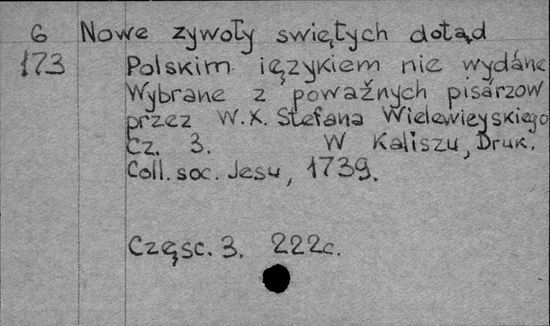 6 Nowe zywoły swiętych dotąd
173 Polskim ięzykiem nie wydáne
Wybrane z poważnych pisarzow
przez W.X. Stefana Wielewieyskiego
Cz. 3. W Kaliszu, Druk.
Coll. soc. Jesu, 1739.
Częsc. 3. 222c.